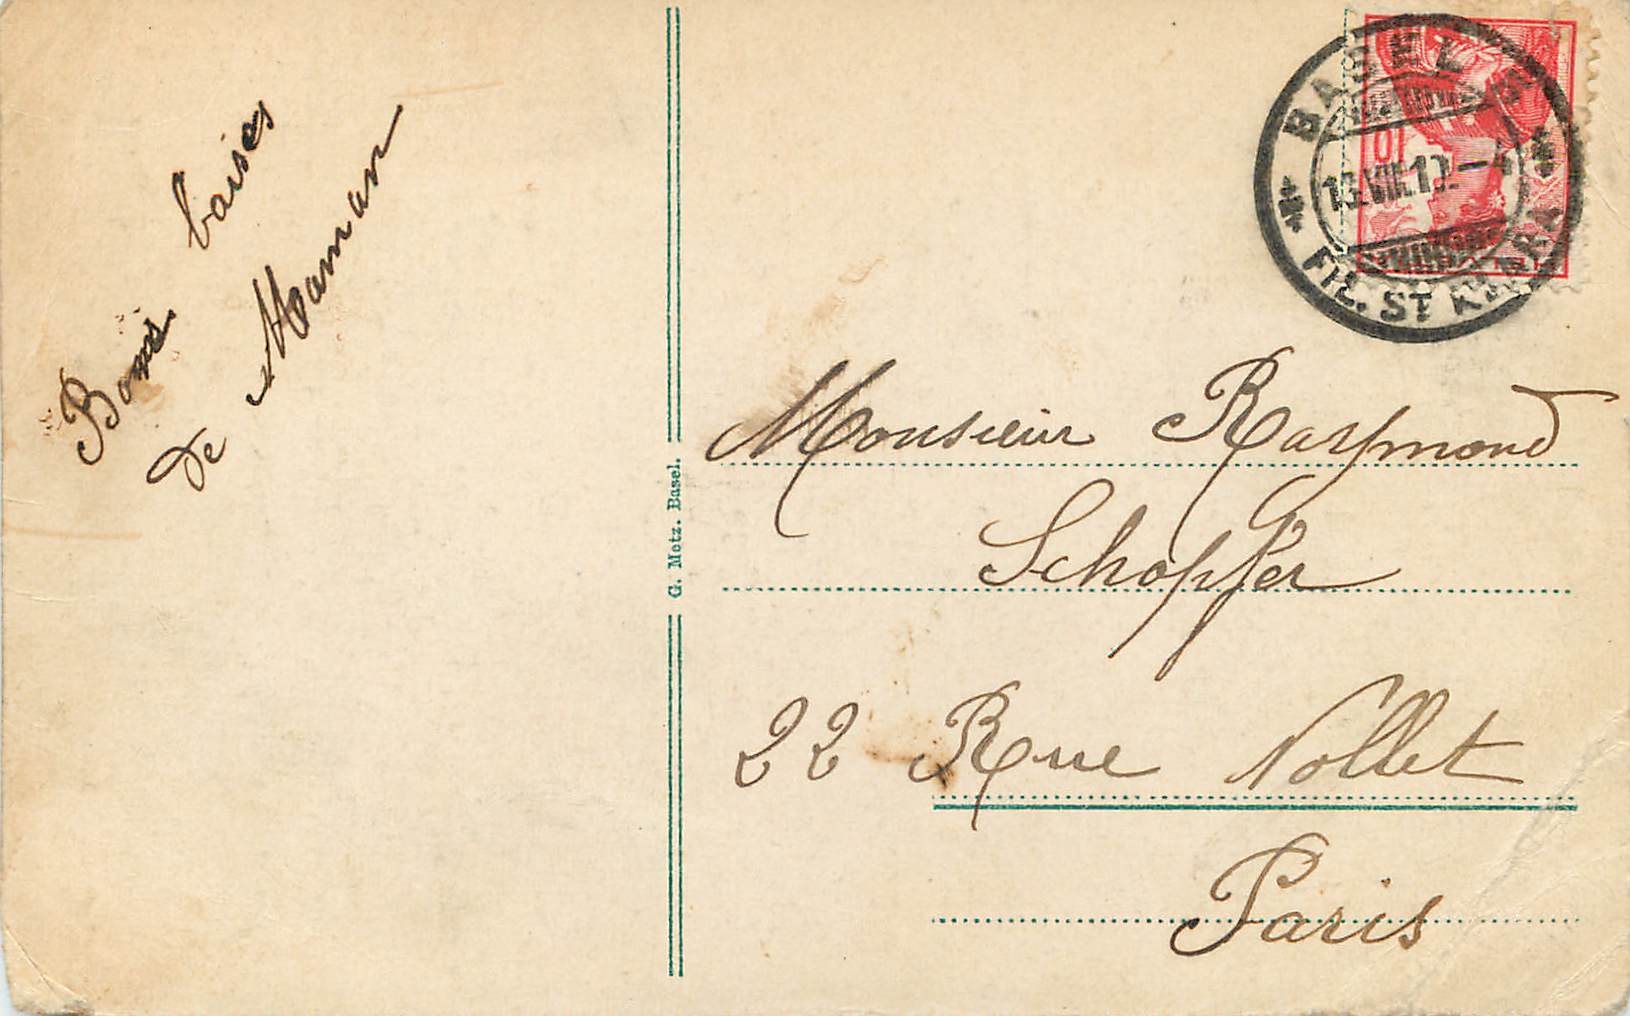 Bons baises
de Maman
G. Metz. Basel.
BASEL
FIL. ST
10
Monsieur Raymond
Schopfer
22 Rue Nollet
Paris